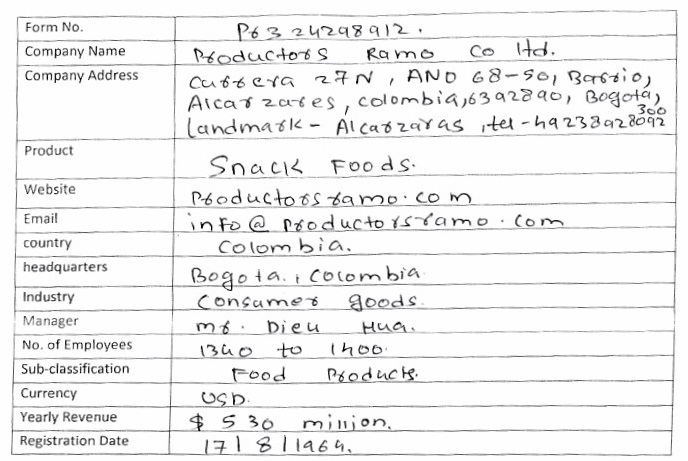 Form No. P63 24298912.
Company Name Productors Ramo Co ltd.
Company Address Carrera 27N, AND 68-50, Barrio,
Alcarzares, colombia, 6392890, Bogota,
300
landmark - Alcarzaras, tel - 49238928092
Product Snack Foods.
Website Productorsramo.com
Email info@productorsramo.com
country Colombia.
headquarters Bogota., Colombia.
Industry Consumer goods.
Manager mr. Dieu Hua.
No. of Employees 1340 to 1400.
Sub-classification Food Products.
Currency USD.
Yearly Revenue $ 530 million.
Registration Date 17/8/1964.